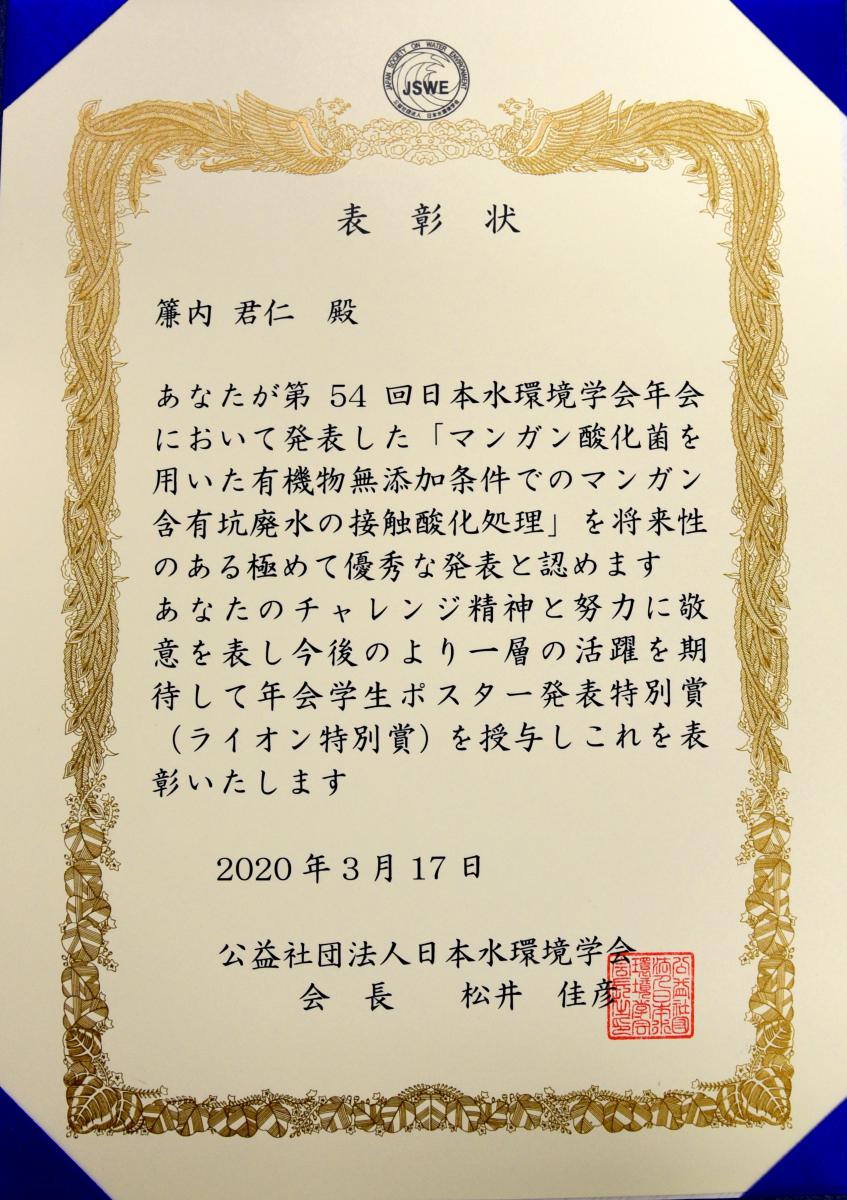 JAPAN SOCIETY ON WATER ENVIRONMENT
JSWE
公益社団法人 日本水環境学会
表 彰 状
簾内 君仁 殿
あなたが第 54 回日本水環境学会年会
において発表した「マンガン酸化菌を
用いた有機物無添加条件でのマンガン
含有坑廃水の接触酸化処理」を将来性
のある極めて優秀な発表と認めます
あなたのチャレンジ精神と努力に敬
意を表し今後のより一層の活躍を期
待して年会学生ポスター発表特別賞
（ライオン特別賞）を授与しこれを表
彰いたします
2020 年 3 月 17 日
公益社団法人日本水環境学会
会 長 松井 佳彦
公益社団
法人日本水
環境学会
会長之印